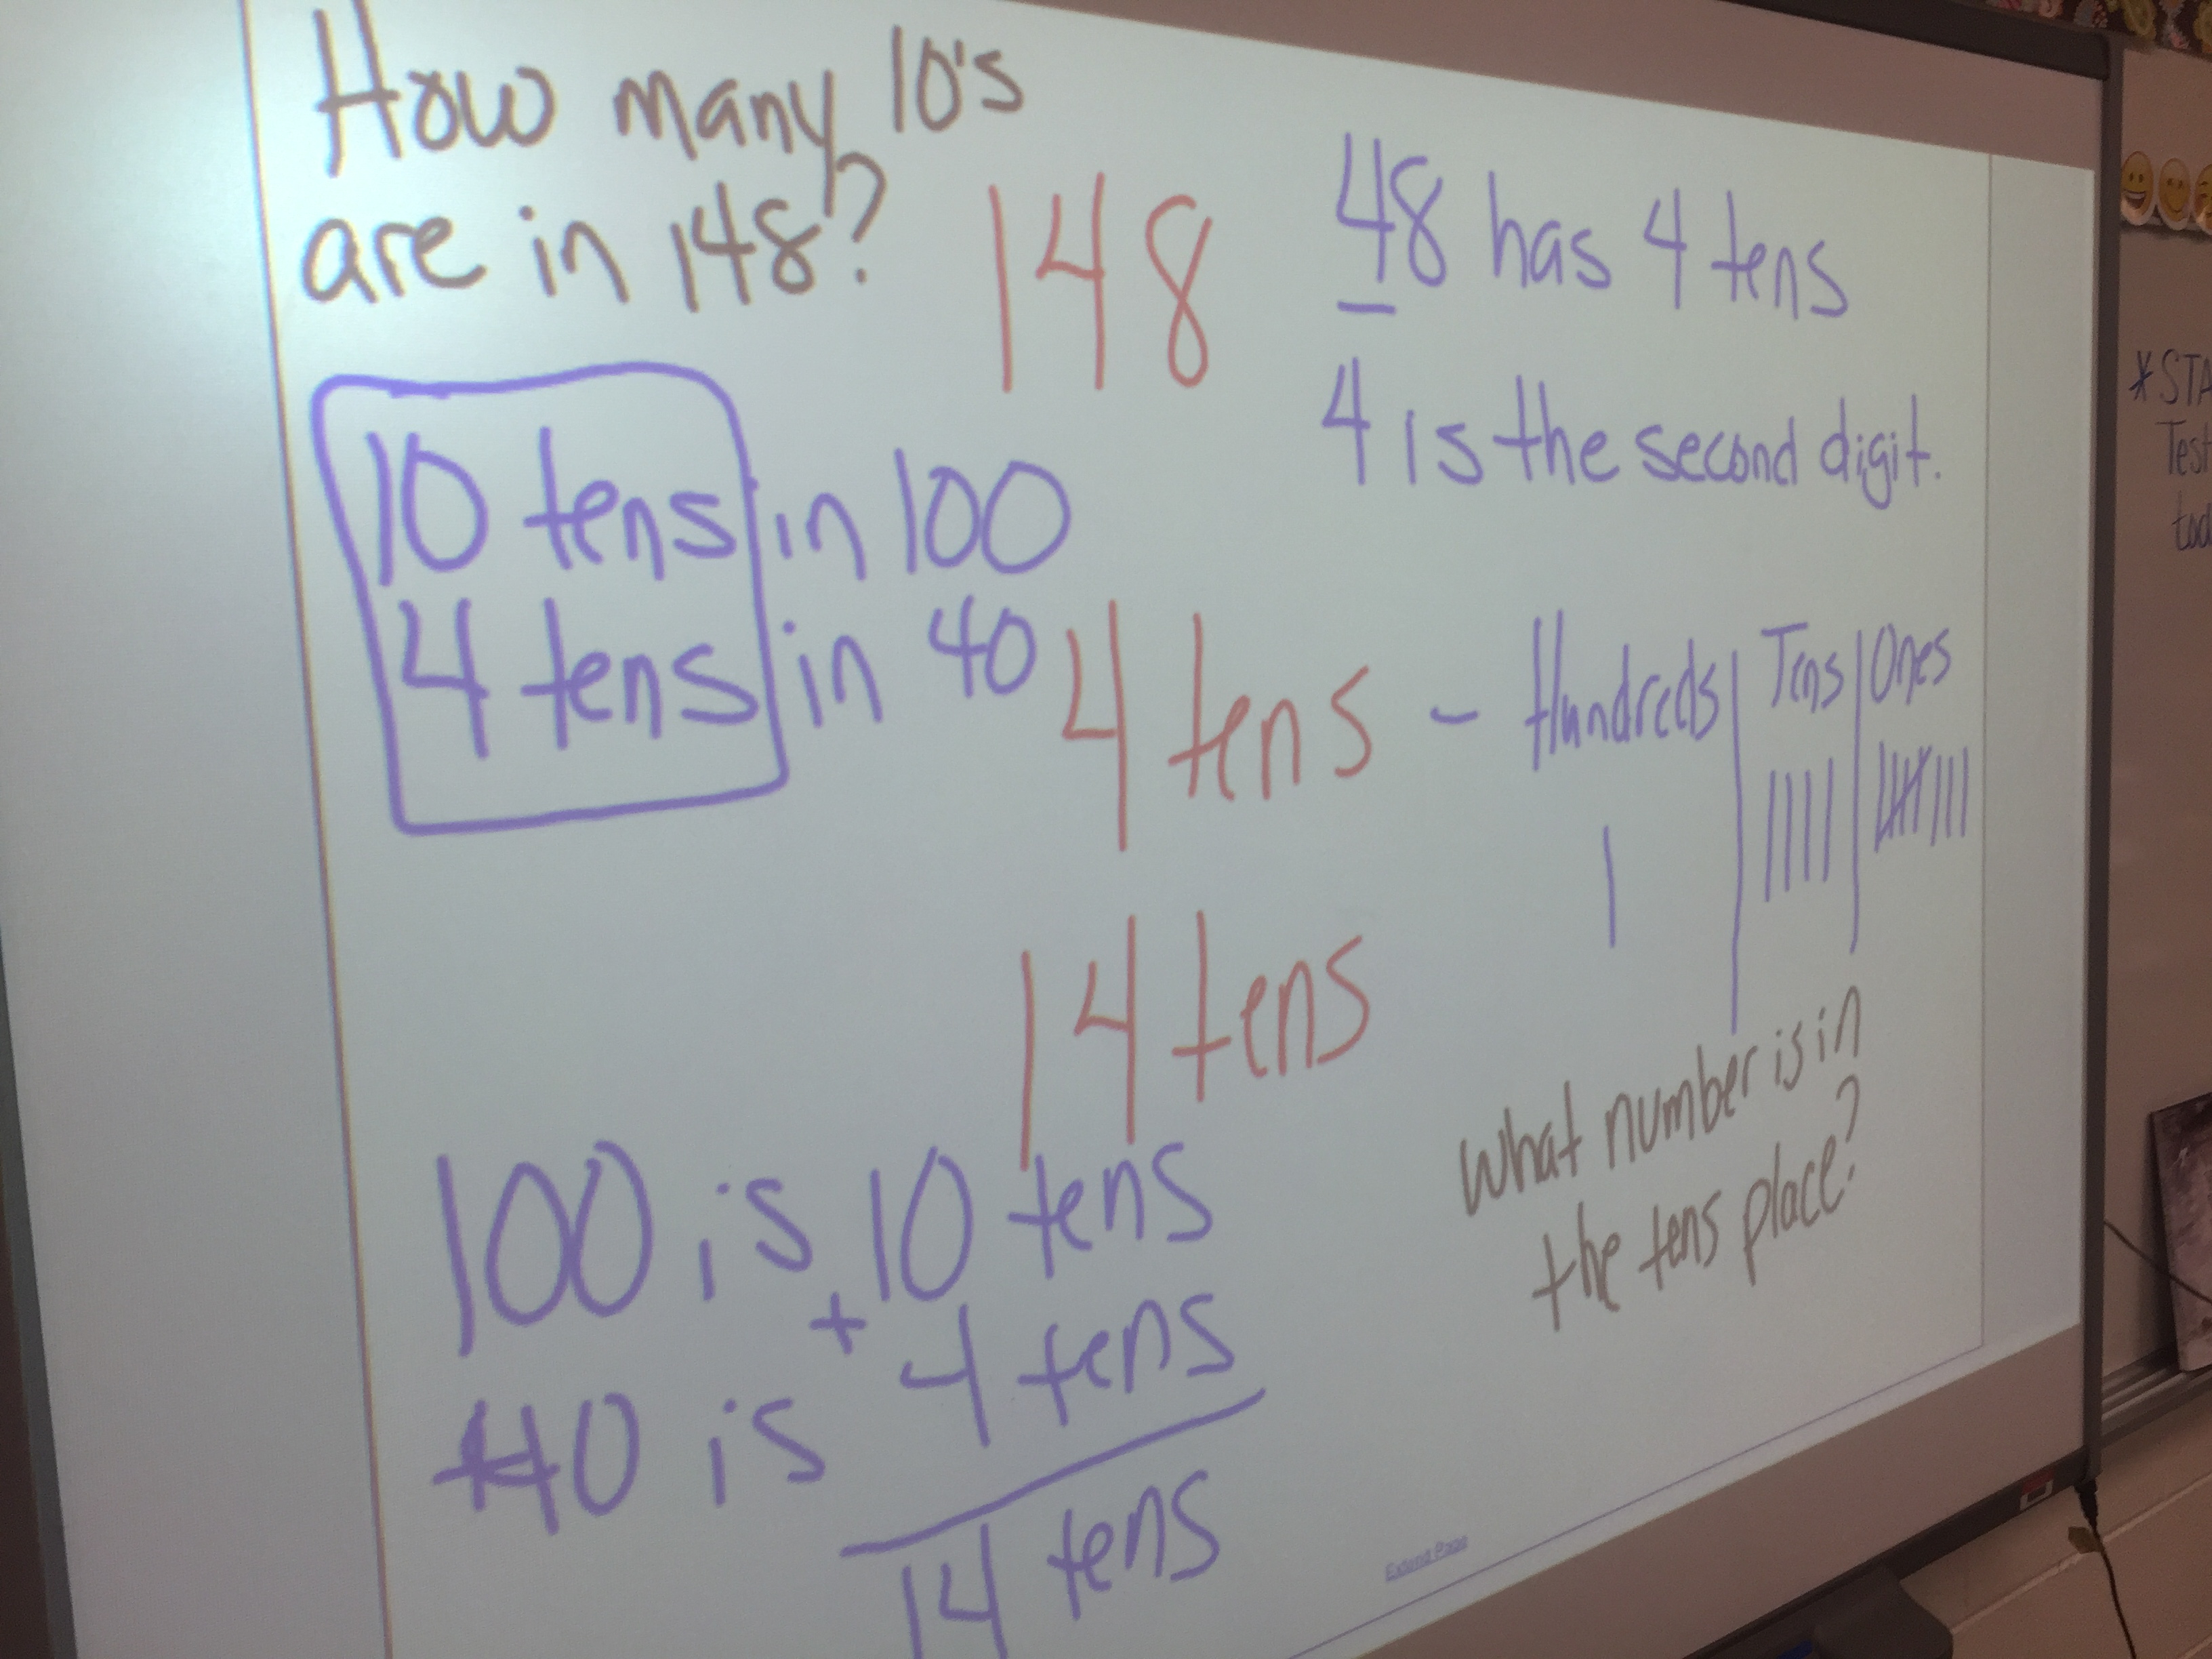 How many 10's
are in 148?
148
48 has 4 tens
4 is the second digit.
10 tens in 100
4 tens in 40
4 tens - Hundreds Tens Ones
14 tens
What number is in
the tens place?
100 is 10 tens
40 is + 4 tens
14 tens
Extend Page
*STA
Test